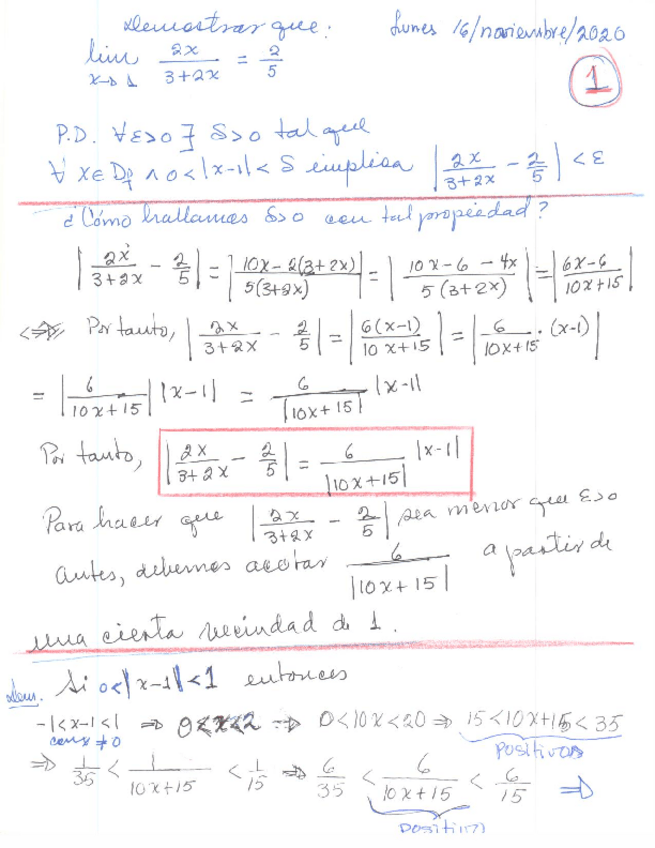 Demostrar que: Lunes 16/noviembre/2020
lim x→1 2x/(3+2x) = 2/5
1
P.D. ∀ε>0 ∃ δ>0 tal que
∀ x∈D_f ∧ 0<|x-1|<δ implica |2x/(3+2x) - 2/5| < ε
¿Cómo hallamos δ>0 con tal propiedad?
|2x/(3+2x) - 2/5| = |(10x-2(3+2x))/(5(3+2x))| = |(10x-6-4x)/(5(3+2x))| = |(6x-6)/(10x+15)|
Por tanto, |2x/(3+2x) - 2/5| = |6(x-1)/(10x+15)| = |6/(10x+15) · (x-1)|
= |6/(10x+15)| |x-1| = 6/|10x+15| |x-1|
Por tanto, |2x/(3+2x) - 2/5| = 6/|10x+15| |x-1|
Para hacer que |2x/(3+2x) - 2/5| sea menor que ε>0
antes, debemos acotar 6/|10x+15| a partir de
una cierta vecindad de 1.
Dem. Si 0<|x-1|<1 entonces
-1<x-1<1 ⇒ 0<x<2 ⇒ 0<10x<20 ⇒ 15<10x+15<35
con x≠0 positivos
⇒ 1/35 < 1/(10x+15) < 1/15 ⇒ 6/35 < 6/(10x+15) < 6/15 ⇒